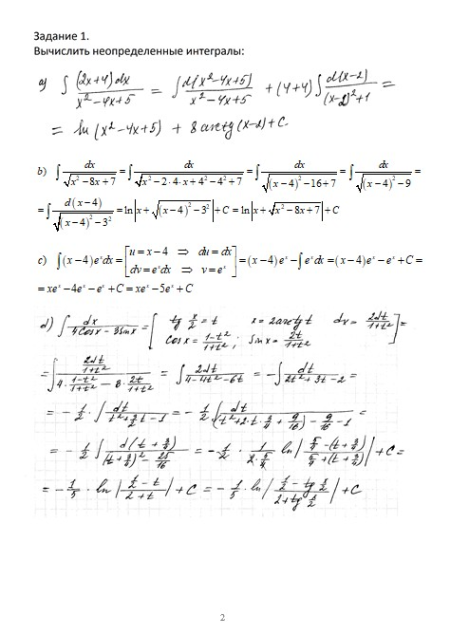 Задание 1.
Вычислить неопределенные интегралы:
a) ∫ (2x+4)dx / (x²-4x+5) = ∫ d(x²-4x+5) / (x²-4x+5) + (4+4) ∫ d(x-2) / ((x-2)²+1) =
= ln(x²-4x+5) + 8 arctg(x-2) + C.
b) ∫ dx / √(x²-8x+7) = ∫ dx / √(x²-2·4·x+4²-4²+7) = ∫ dx / √((x-4)²-16+7) = ∫ dx / √((x-4)²-9) =
= ∫ d(x-4) / √((x-4)²-3²) = ln|x+√((x-4)²-3²)|+C = ln|x+√(x²-8x+7)|+C
c) ∫(x-4)eˣdx = [u=x-4 ⇒ du=dx; dv=eˣdx ⇒ v=eˣ] = (x-4)eˣ-∫eˣdx = (x-4)eˣ-eˣ+C =
= xeˣ-4eˣ-eˣ+C = xeˣ-5eˣ+C
d) ∫ dx / (4cosx - 3sinx) = [tg x/2 = t x = 2arctg t dx = 2dt/(1+t²); cosx = (1-t²)/(1+t²); sinx = 2t/(1+t²)] =
= ∫ (2dt/(1+t²)) / (4·(1-t²)/(1+t²) - 3·2t/(1+t²)) = ∫ 2dt / (4-4t²-6t) = -∫ dt / (2t²+3t-2) =
= -1/2 · ∫ dt / (t²+3/2t-1) = -1/2 ∫ dt / ((t²+2·t·3/4+9/16)-9/16-1) =
= -1/2 ∫ d(t+3/4) / ((t+3/4)²-25/16) = -1/2 · 1/(2·5/4) ln|(5/4-(t+3/4)) / (5/4+(t+3/4))| + C =
= -1/5 · ln|(1/2-t)/(2+t)| + C = -1/5 · ln|(1/2-tg x/2)/(2+tg x/2)| + C
2